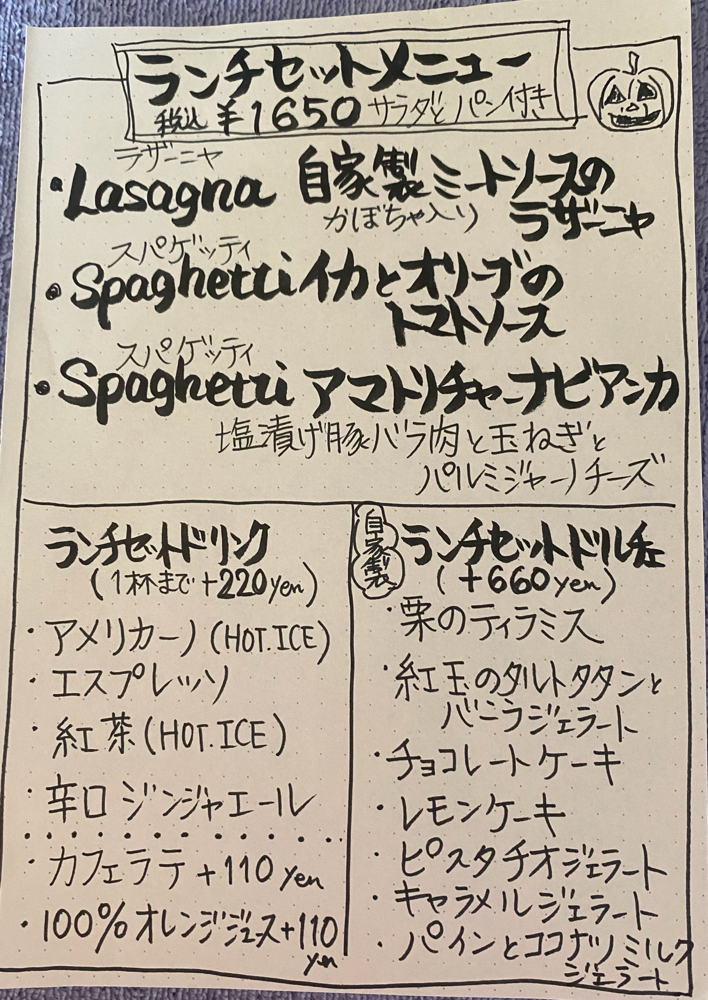 ランチセットメニュー
税込 ¥1650 サラダとパン付き
ラザーニャ
・Lasagna 自家製ミートソースの
かぼちゃ入り ラザーニャ
スパゲッティ
・Spaghetti イカとオリーブの
トマトソース
スパゲッティ
・Spaghetti アマトリチャーナビアンカ
塩漬け豚バラ肉と玉ねぎと
パルミジャーノチーズ
ランチセットドリンク
(1杯まで+220yen)
・アメリカーノ(HOT.ICE)
・エスプレッソ
・紅茶(HOT.ICE)
・辛口ジンジャエール
・カフェラテ+110yen
・100%オレンジジュース+110
yen
自家製
ランチセットドルチェ
(+660yen)
・栗のティラミス
・紅玉のタルトタタンと
バニラジェラート
・チョコレートケーキ
・レモンケーキ
・ピスタチオジェラート
・キャラメルジェラート
・パインとココナツミルク
ジェラート